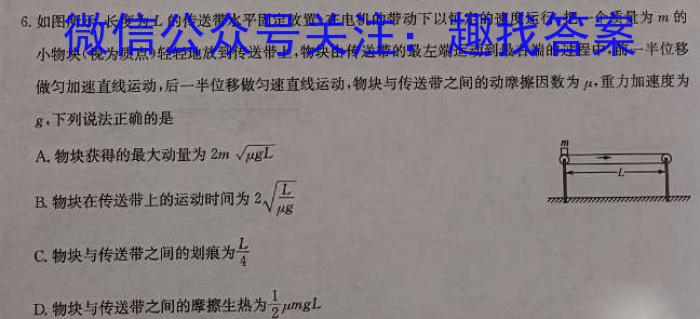 6. 如图所示,长度为 L 的传送带水平固定放置,在电机的带动下以恒定的速度运行,把一个质量为 m 的
微信公众号关注:趣找答案
小物块(视为质点)轻轻地放到传送带上,物块由传送带的最左端运动到最右端的过程中,前一半位移
做匀加速直线运动,后一半位移做匀速直线运动,物块与传送带之间的动摩擦因数为 μ,重力加速度为
g,下列说法正确的是
A. 物块获得的最大动量为 2m √μgL
m
L
B. 物块在传送带上的运动时间为 2√(L/μg)
C. 物块与传送带之间的划痕为 L/4
D. 物块与传送带之间的摩擦生热为 1/2 μmgL